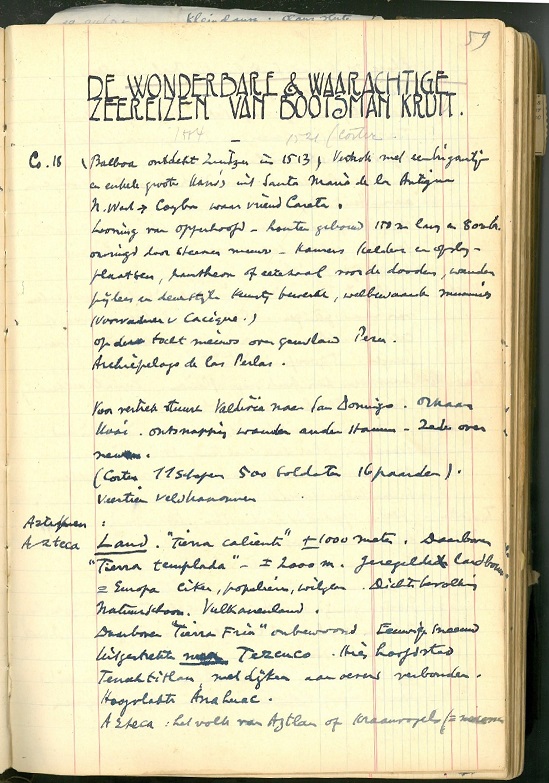 59
DE WONDERBARE & WAARACHTIGE
ZEEREIZEN VAN BOOTSMAN KRUIT.
Co. 18 Balboa ontdekt Zuidzee in 1513. Vertrok met een brigantijn
en enkele groote kano's uit Santa Maria de la Antigua
N.West → Coyba waar vriend Careta.
Woning van opperhoofd – houten gebouw 150 m lang en 80 br.
omringd door steenen muur – Kamers kelders en opslag-
plaatsen, pantheon of eetezaal voor de dooden, wanden
pijlers en kunstig bewerkt, welbewaarde mummies
(voorvaderen v Cacique.)
op tocht nieuws over goudland Peru.
Archipelago de las Perlas.
Voor vertrek stuurt Valdivia naar San Domingo. Orkaan
ontsnapping ander
(Cortes 11 schepen 500 soldaten 16 paarden).
Veertien veldkanonnen
Azteken :
Azteca Land. "Tierra caliente" ± 1000 meter. Daarboven
"Tierra templada" – ± 2000 m. Geregelde landbouw
= Europa eiken, populieren, wilgen. Dichte bevolking
Natuurschoon. Vulkanenland.
Daarboven "Tierra Fria" onbewoond. Eeuwige sneeuw
Uitgestrekte Tezcuco. Hier hoofdstad
Tenochtitlan, met dijken aan oevers verbonden.
Hoogvlakte Anahuac.
Azteca : het volk van Aztlan of kraanvogels (=